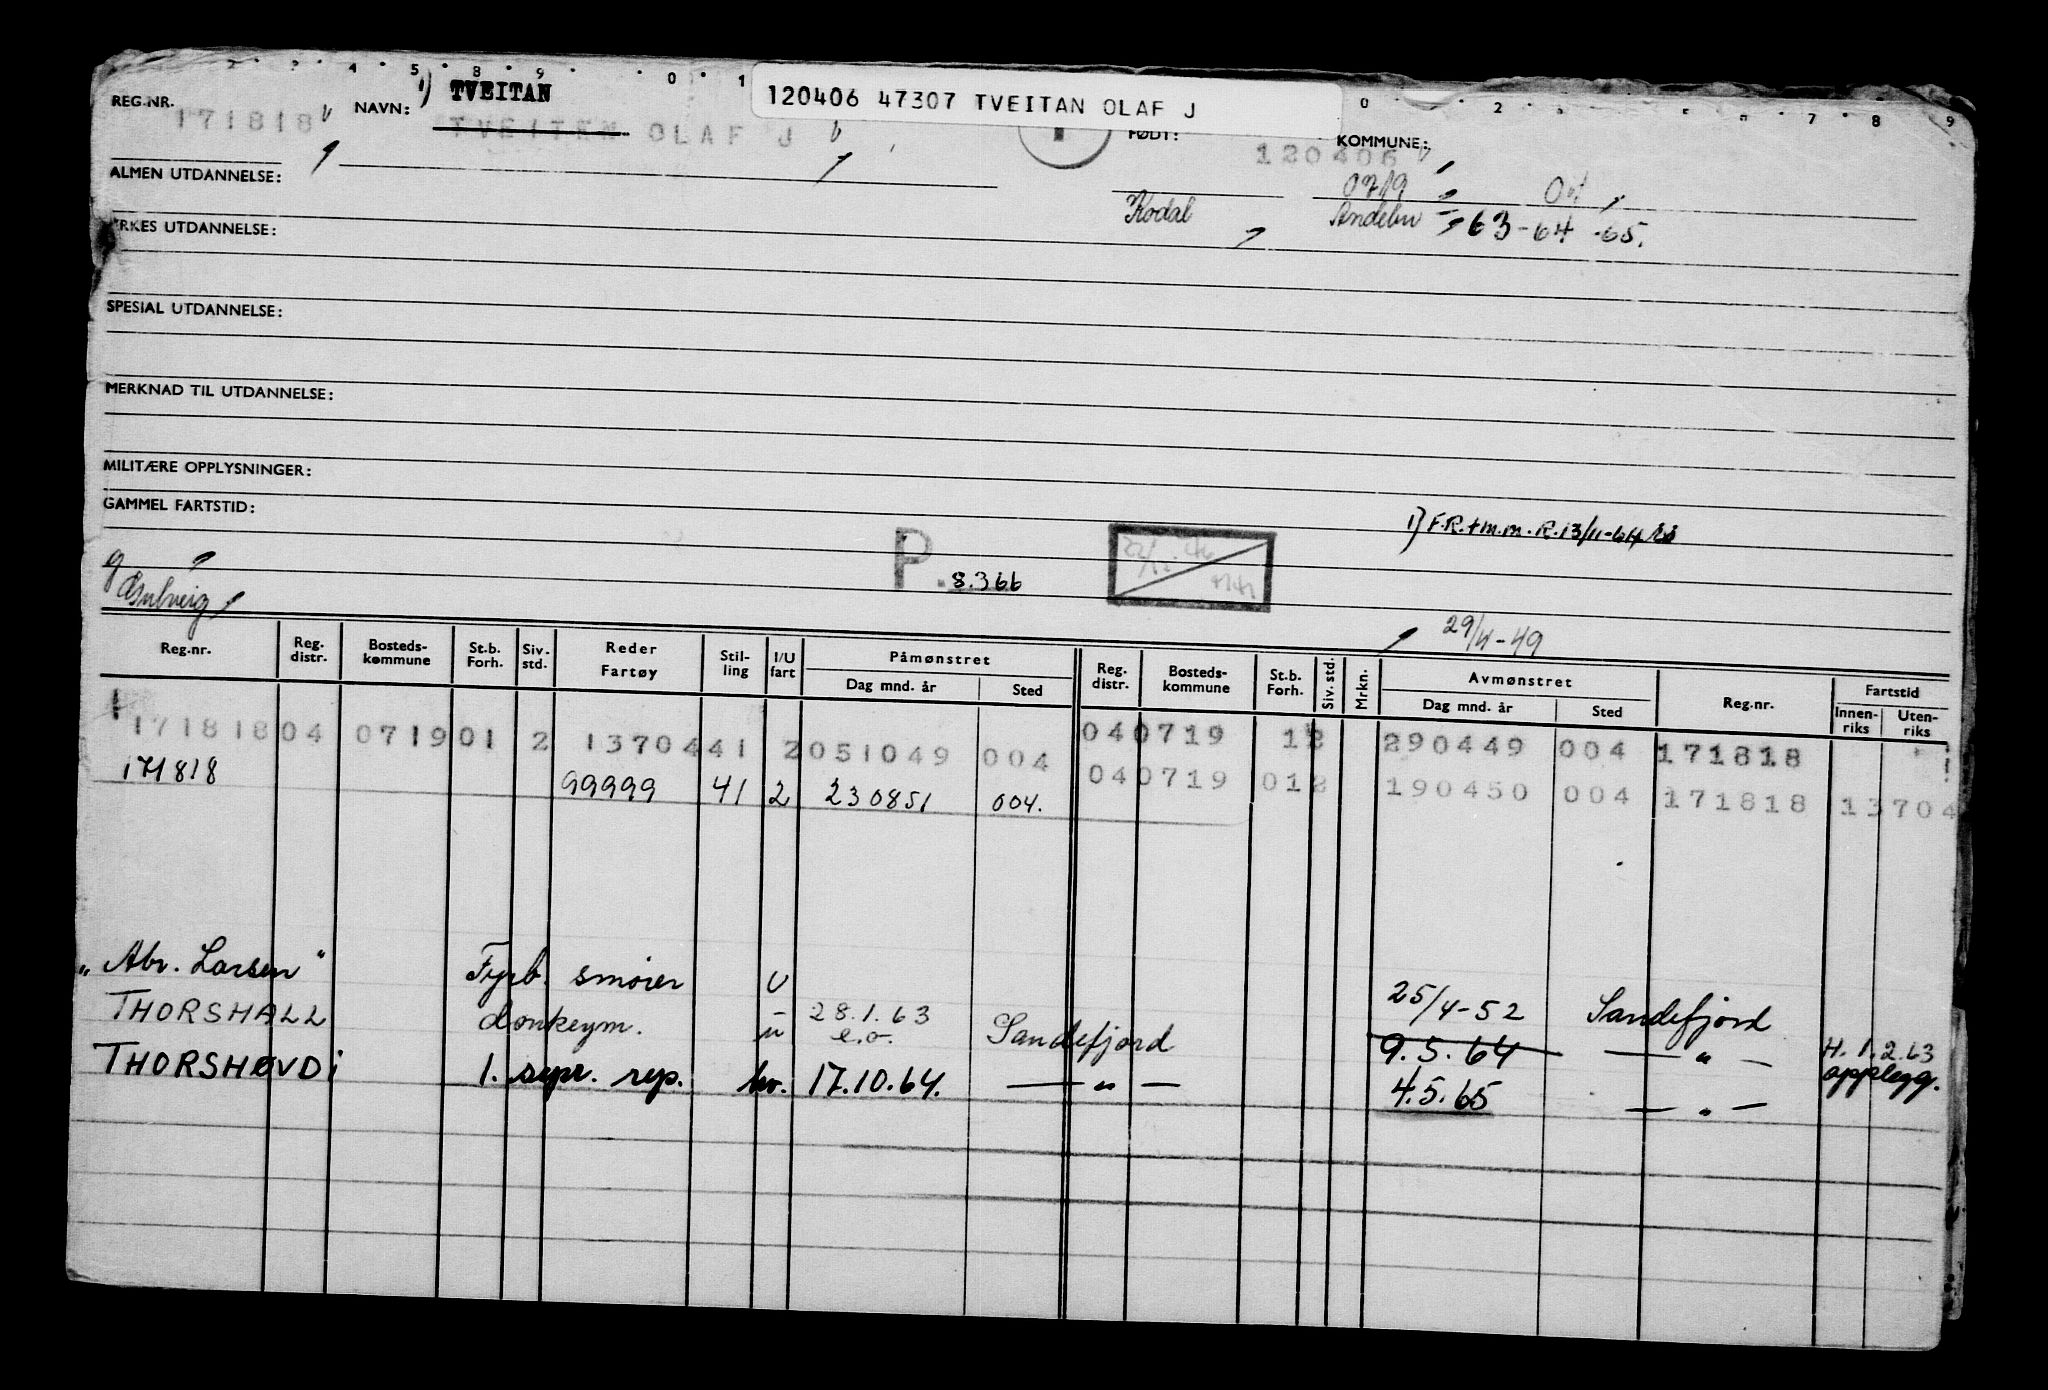 120406 47307 TVEITAN OLAF J
REG.NR. 171818 NAVN: 1) TVEITAN
TVEITEN OLAF J
FØDT: 120406 KOMMUNE:
0719
ALMEN UTDANNELSE:
Kodal Andebu 63-64-65.
YRKES UTDANNELSE:
SPESIAL UTDANNELSE:
MERKNAD TIL UTDANNELSE:
MILITÆRE OPPLYSNINGER:
GAMMEL FARTSTID:
1) F.R.+m.m. R.13/11-64
P. 8.366
g
29/4-49
Reg.nr. Reg. distr. Bosteds-kommune St.b. Forh. Siv-std. Reder Fartøy Stil-ling I/U fart Påmønstret Dag mnd. år Sted Reg. distr. Bosteds-kommune St.b. Forh. Siv. std. Mrkn. Avmønstret Dag mnd. år Sted Reg.nr. Fartstid Innen-riks Uten-riks
171818 04 0719 01 2 13704 41 2 051049 004 04 0719 12 290449 004 171818
171818 99999 41 2 230851 004. 04 0719 012 190450 004 171818 13704
"Abr. Larsen" Fyrb. smører U 25/4-52 Sandefjord
THORSHALL donkeym. u 28.1.63 e.o. Sandefjord 9.5.64 — " — H. 1.2.63
THORSHØVDI 1. rep. hv. 17.10.64. — " — 4.5.65 — " — opplegg.